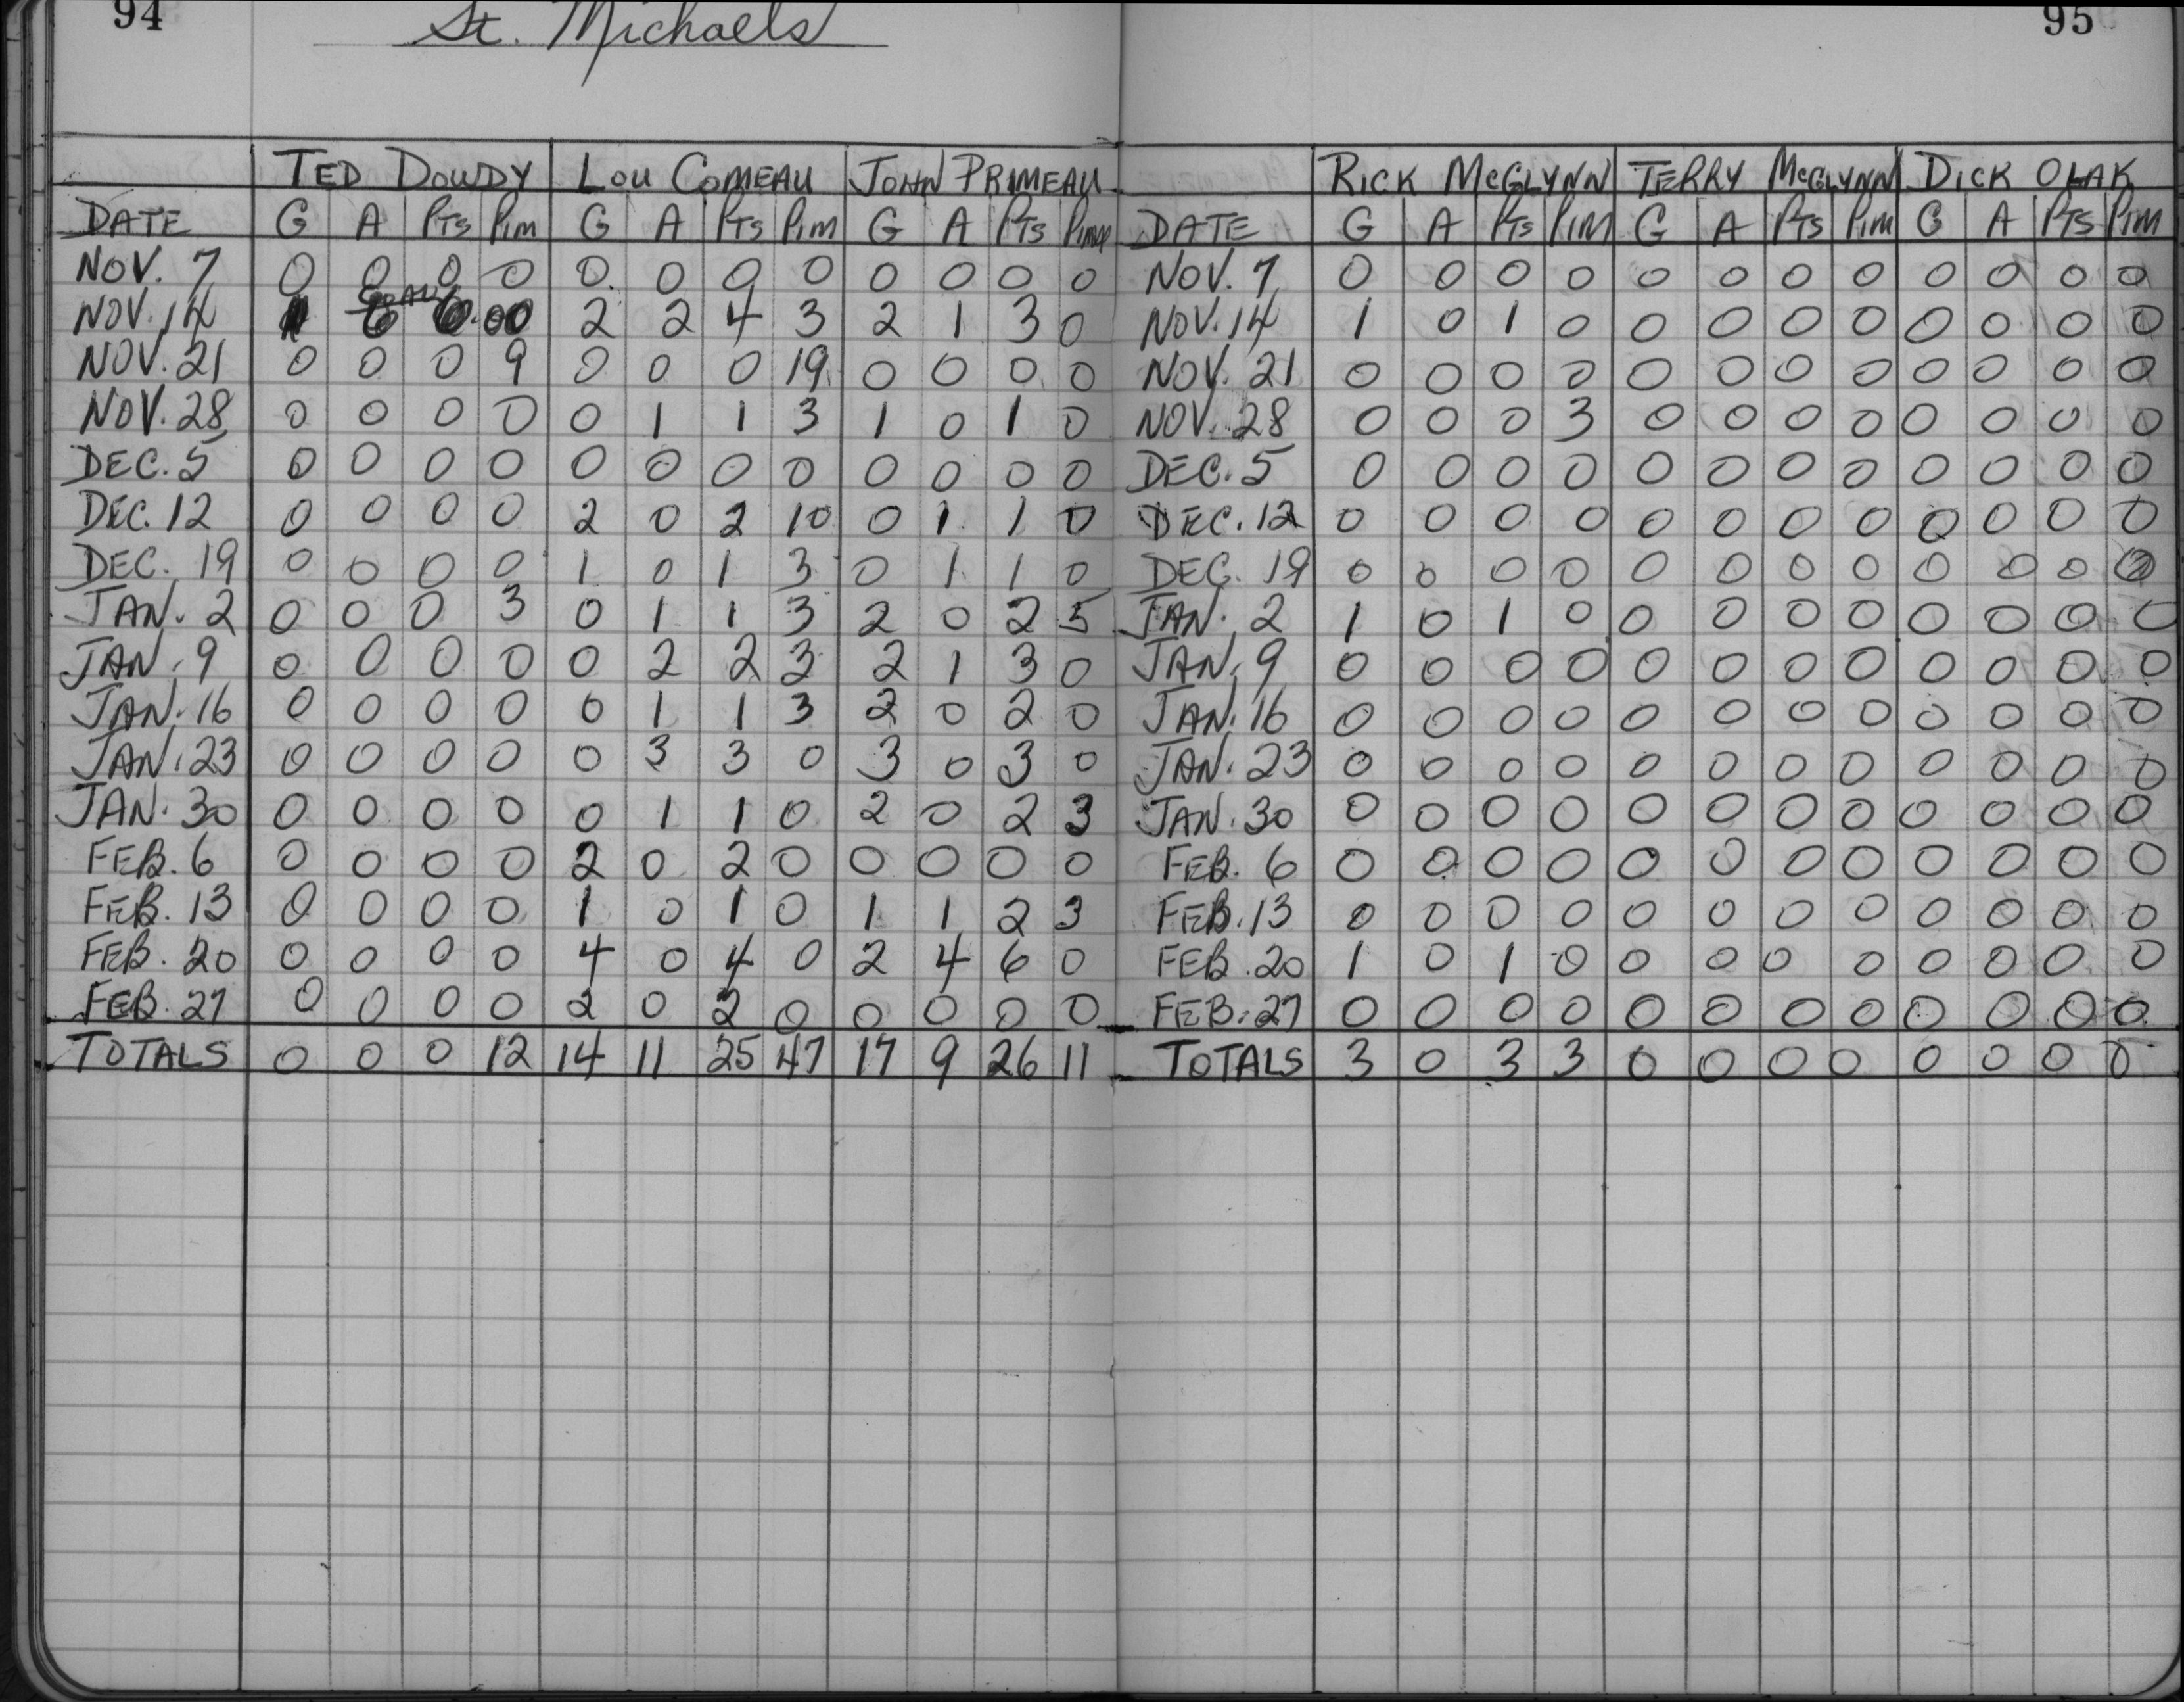 94
St. Michaels
95
TED DOWDY LOU COMEAU JOHN PRIMEAU RICK McGLYNN TERRY McGLYNN DICK OLAK
DATE G A PTS PIM G A PTS PIM G A PTS PIM DATE G A PTS PIM G A PTS PIM G A PTS PIM
NOV. 7 0 0 0 0 0 0 0 0 0 0 0 0 NOV. 7 0 0 0 0 0 0 0 0 0 0 0 0
NOV. 14 2 2 4 3 2 1 3 0 NOV. 14 1 0 1 0 0 0 0 0 0 0 0 0
NOV. 21 0 0 0 9 0 0 0 19 0 0 0 0 NOV. 21 0 0 0 0 0 0 0 0 0 0 0 0
NOV. 28 0 0 0 0 0 1 1 3 1 0 1 0 NOV. 28 0 0 0 3 0 0 0 0 0 0 0 0
DEC. 5 0 0 0 0 0 0 0 0 0 0 0 0 DEC. 5 0 0 0 0 0 0 0 0 0 0 0 0
DEC. 12 0 0 0 0 2 0 2 10 0 1 1 0 DEC. 12 0 0 0 0 0 0 0 0 0 0 0 0
DEC. 19 0 0 0 0 1 0 1 3 0 1 1 0 DEC. 19 0 0 0 0 0 0 0 0 0 0 0 0
JAN. 2 0 0 0 3 0 1 1 3 2 0 2 5 JAN. 2 1 0 1 0 0 0 0 0 0 0 0 0
JAN. 9 0 0 0 0 0 2 2 3 2 1 3 0 JAN. 9 0 0 0 0 0 0 0 0 0 0 0 0
JAN. 16 0 0 0 0 0 1 1 3 2 0 2 0 JAN. 16 0 0 0 0 0 0 0 0 0 0 0 0
JAN. 23 0 0 0 0 0 3 3 0 3 0 3 0 JAN. 23 0 0 0 0 0 0 0 0 0 0 0 0
JAN. 30 0 0 0 0 0 1 1 0 2 0 2 3 JAN. 30 0 0 0 0 0 0 0 0 0 0 0 0
FEB. 6 0 0 0 0 2 0 2 0 0 0 0 0 FEB. 6 0 0 0 0 0 0 0 0 0 0 0 0
FEB. 13 0 0 0 0 1 0 1 0 1 1 2 3 FEB. 13 0 0 0 0 0 0 0 0 0 0 0 0
FEB. 20 0 0 0 0 4 0 4 0 2 4 6 0 FEB. 20 1 0 1 0 0 0 0 0 0 0 0 0
FEB. 27 0 0 0 0 2 0 2 0 0 0 0 0 FEB. 27 0 0 0 0 0 0 0 0 0 0 0 0
TOTALS 0 0 0 12 14 11 25 47 17 9 26 11 TOTALS 3 0 3 3 0 0 0 0 0 0 0 0